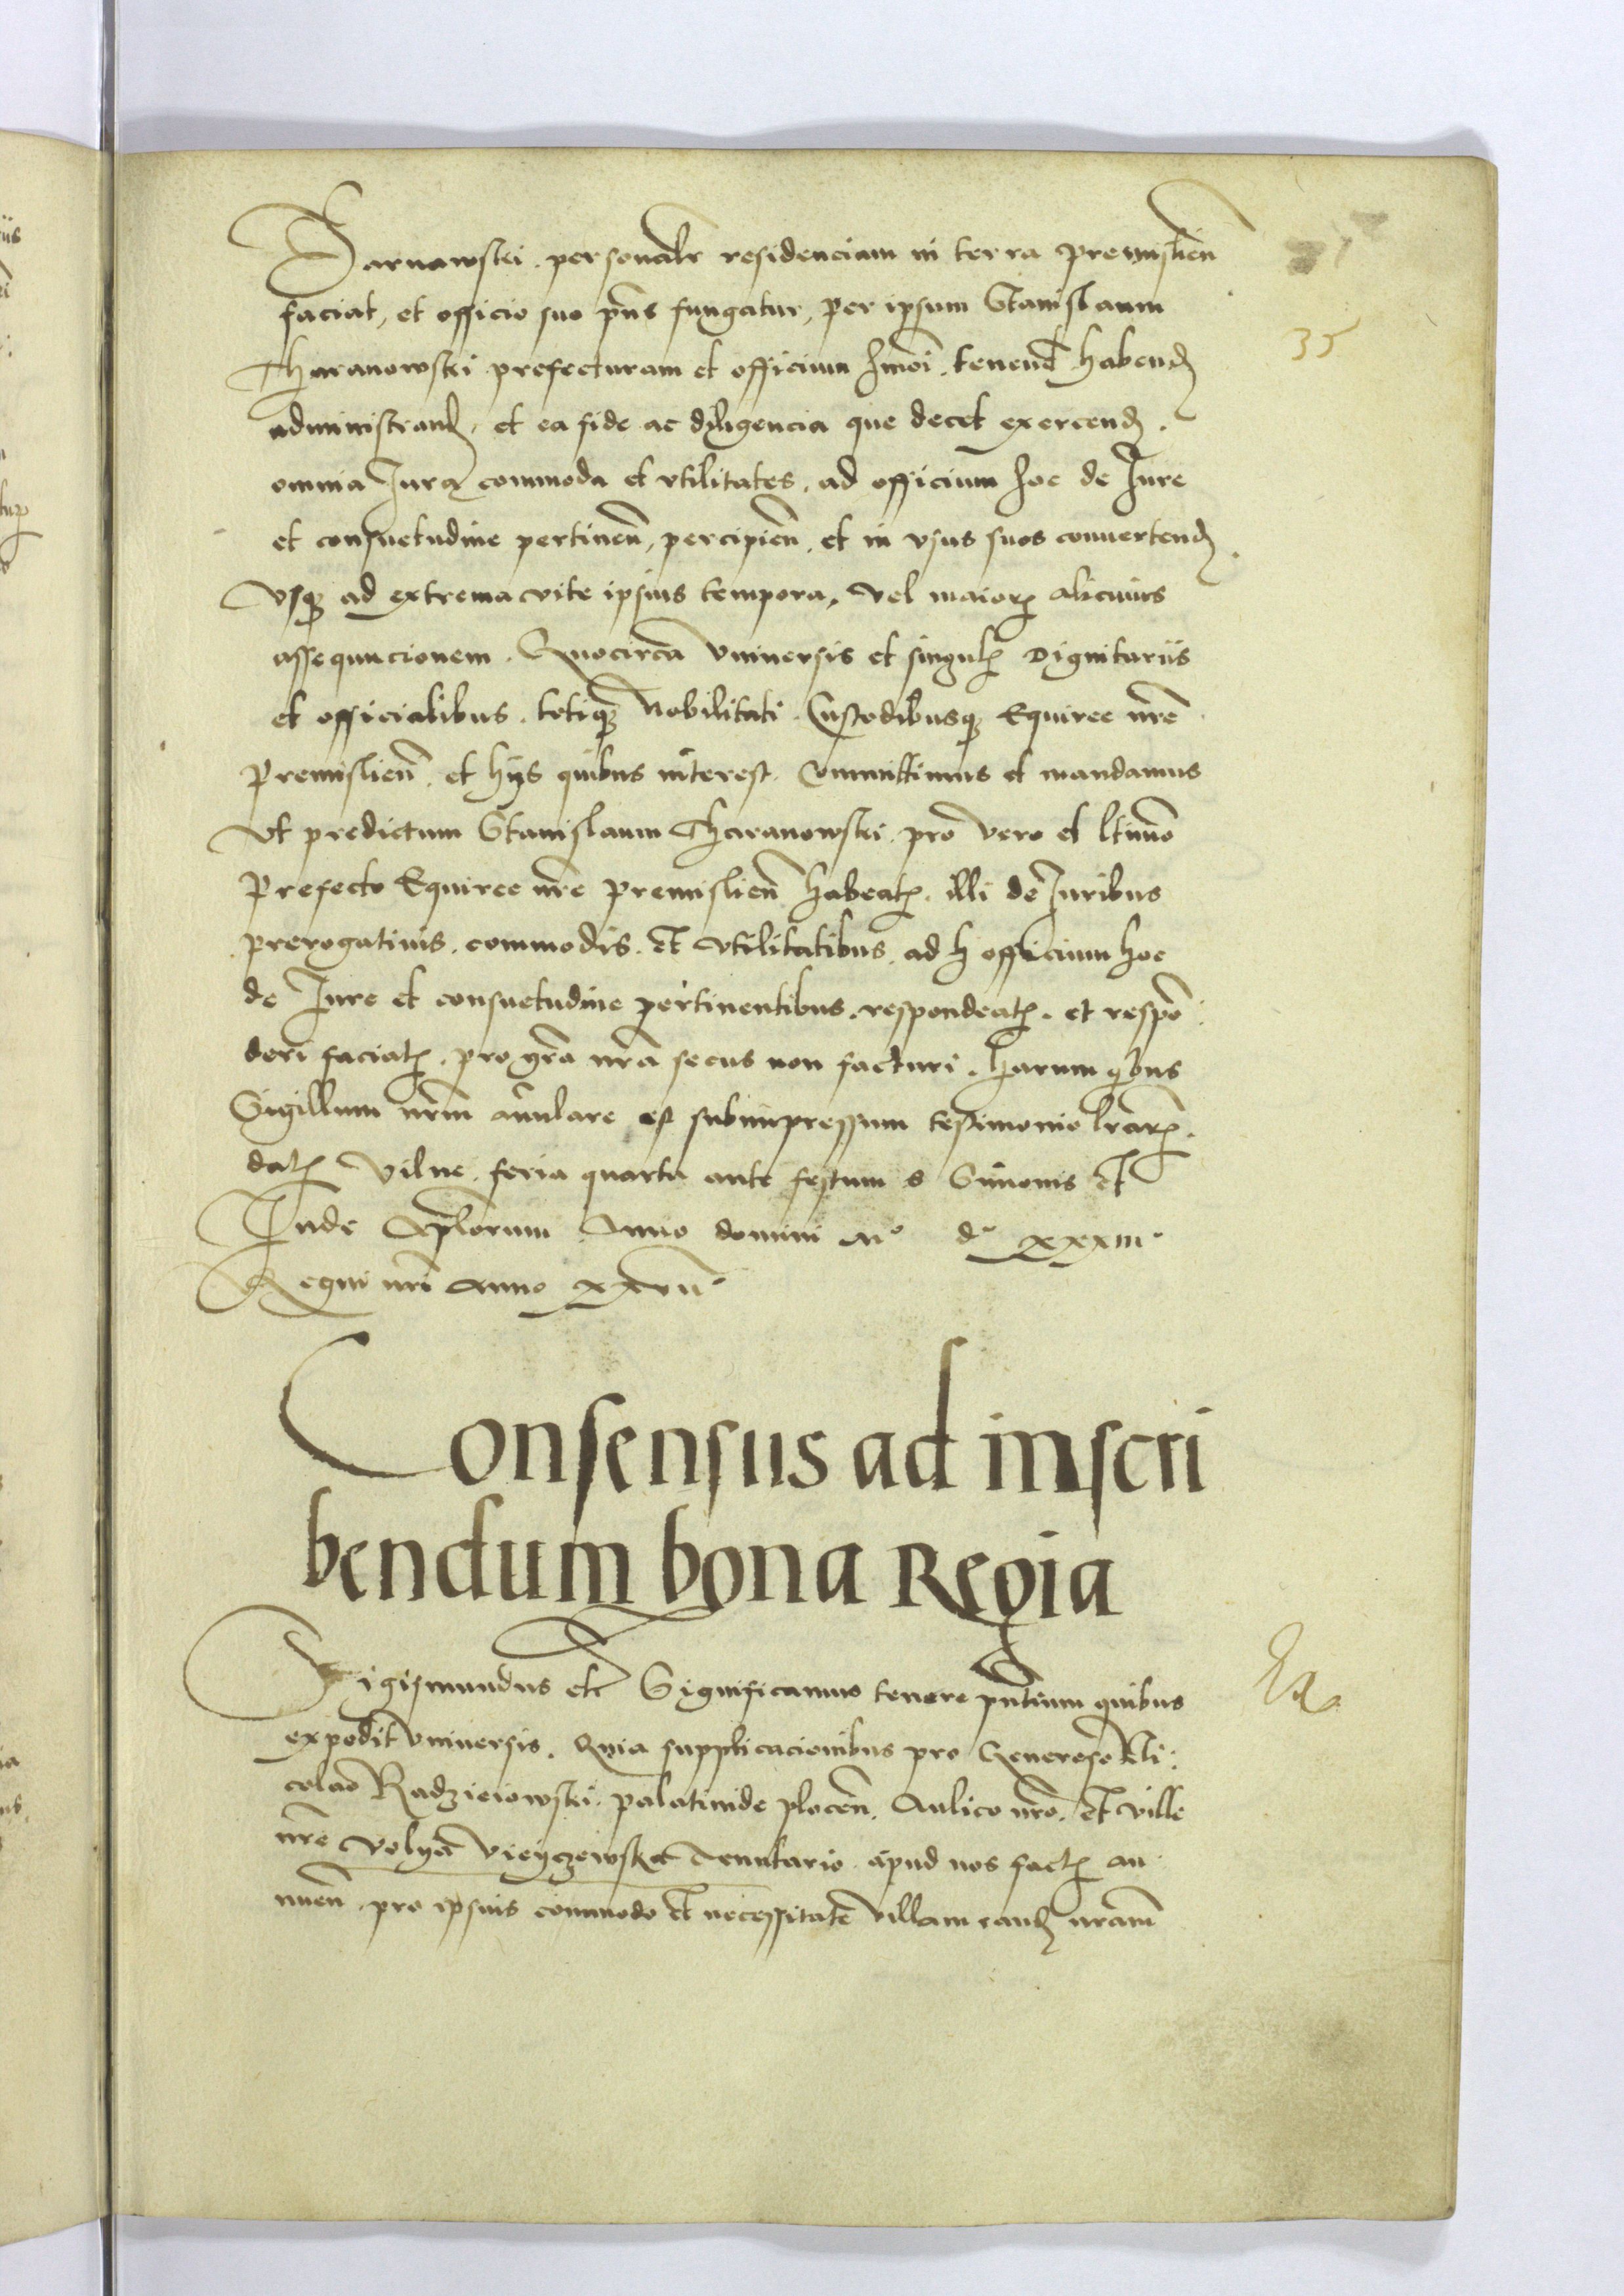 Tarnawski personalr residenciam in terra Premislien
faciat, et officio suo pns fungatur, per ipsum Stanislaum
Tharanowski prefecturam et officium hmoi tenend habend
administrand, et ea fide ac diligencia que decet exercend.
omnia Iuraq commoda et vtilitates, ad officium hoc de Iure
et consuetudine pertinen, percipien, et in vsus suos conuertend
vsq ad extrema vite ipsius tempora, vel maioris alicuius
assequucionem. Quocirca vniuersis et singulis Dignitariis
et officialibus, totiq Nobilitati Custodibusq Equiree nre
Premislien, et hijs quibus interest, Committimus et mandamus
Vt predictum Stanislaum Tharanowski pro vero et ltimo
Prefecto Equiree nre Premislien habeatis, illi de Iuribus
prerogatiuis, commodis, et vtilitatibus, ad h officium hoc
de Iure et consuetudine pertinentibus, respondeatis, et respo
deri faciatis, pro gra nra secus non facturi. Harum qbus
Sigillum nrm annulare est subimpressum testimonio lrarum.
datum Vilne feria quarta ante festum s Simonis et
Iude Aplorum Anno domini Mo do xxxiiio
Regni nri anno xxviio
Consensus ad inscri
bendum bona Regia
Sigismundus etc Significamus tenore pntium quibus
expedit vniuersis. Quia supplicacionibus pro Generoso Ni:
colao Radzieiowski palatinide plocen, Aulico nro, et ville
nre Volya Vieyczewska Tenutario apud nos factis an
nuen, pro ipsius commodo et necessitate villam eand nram
35